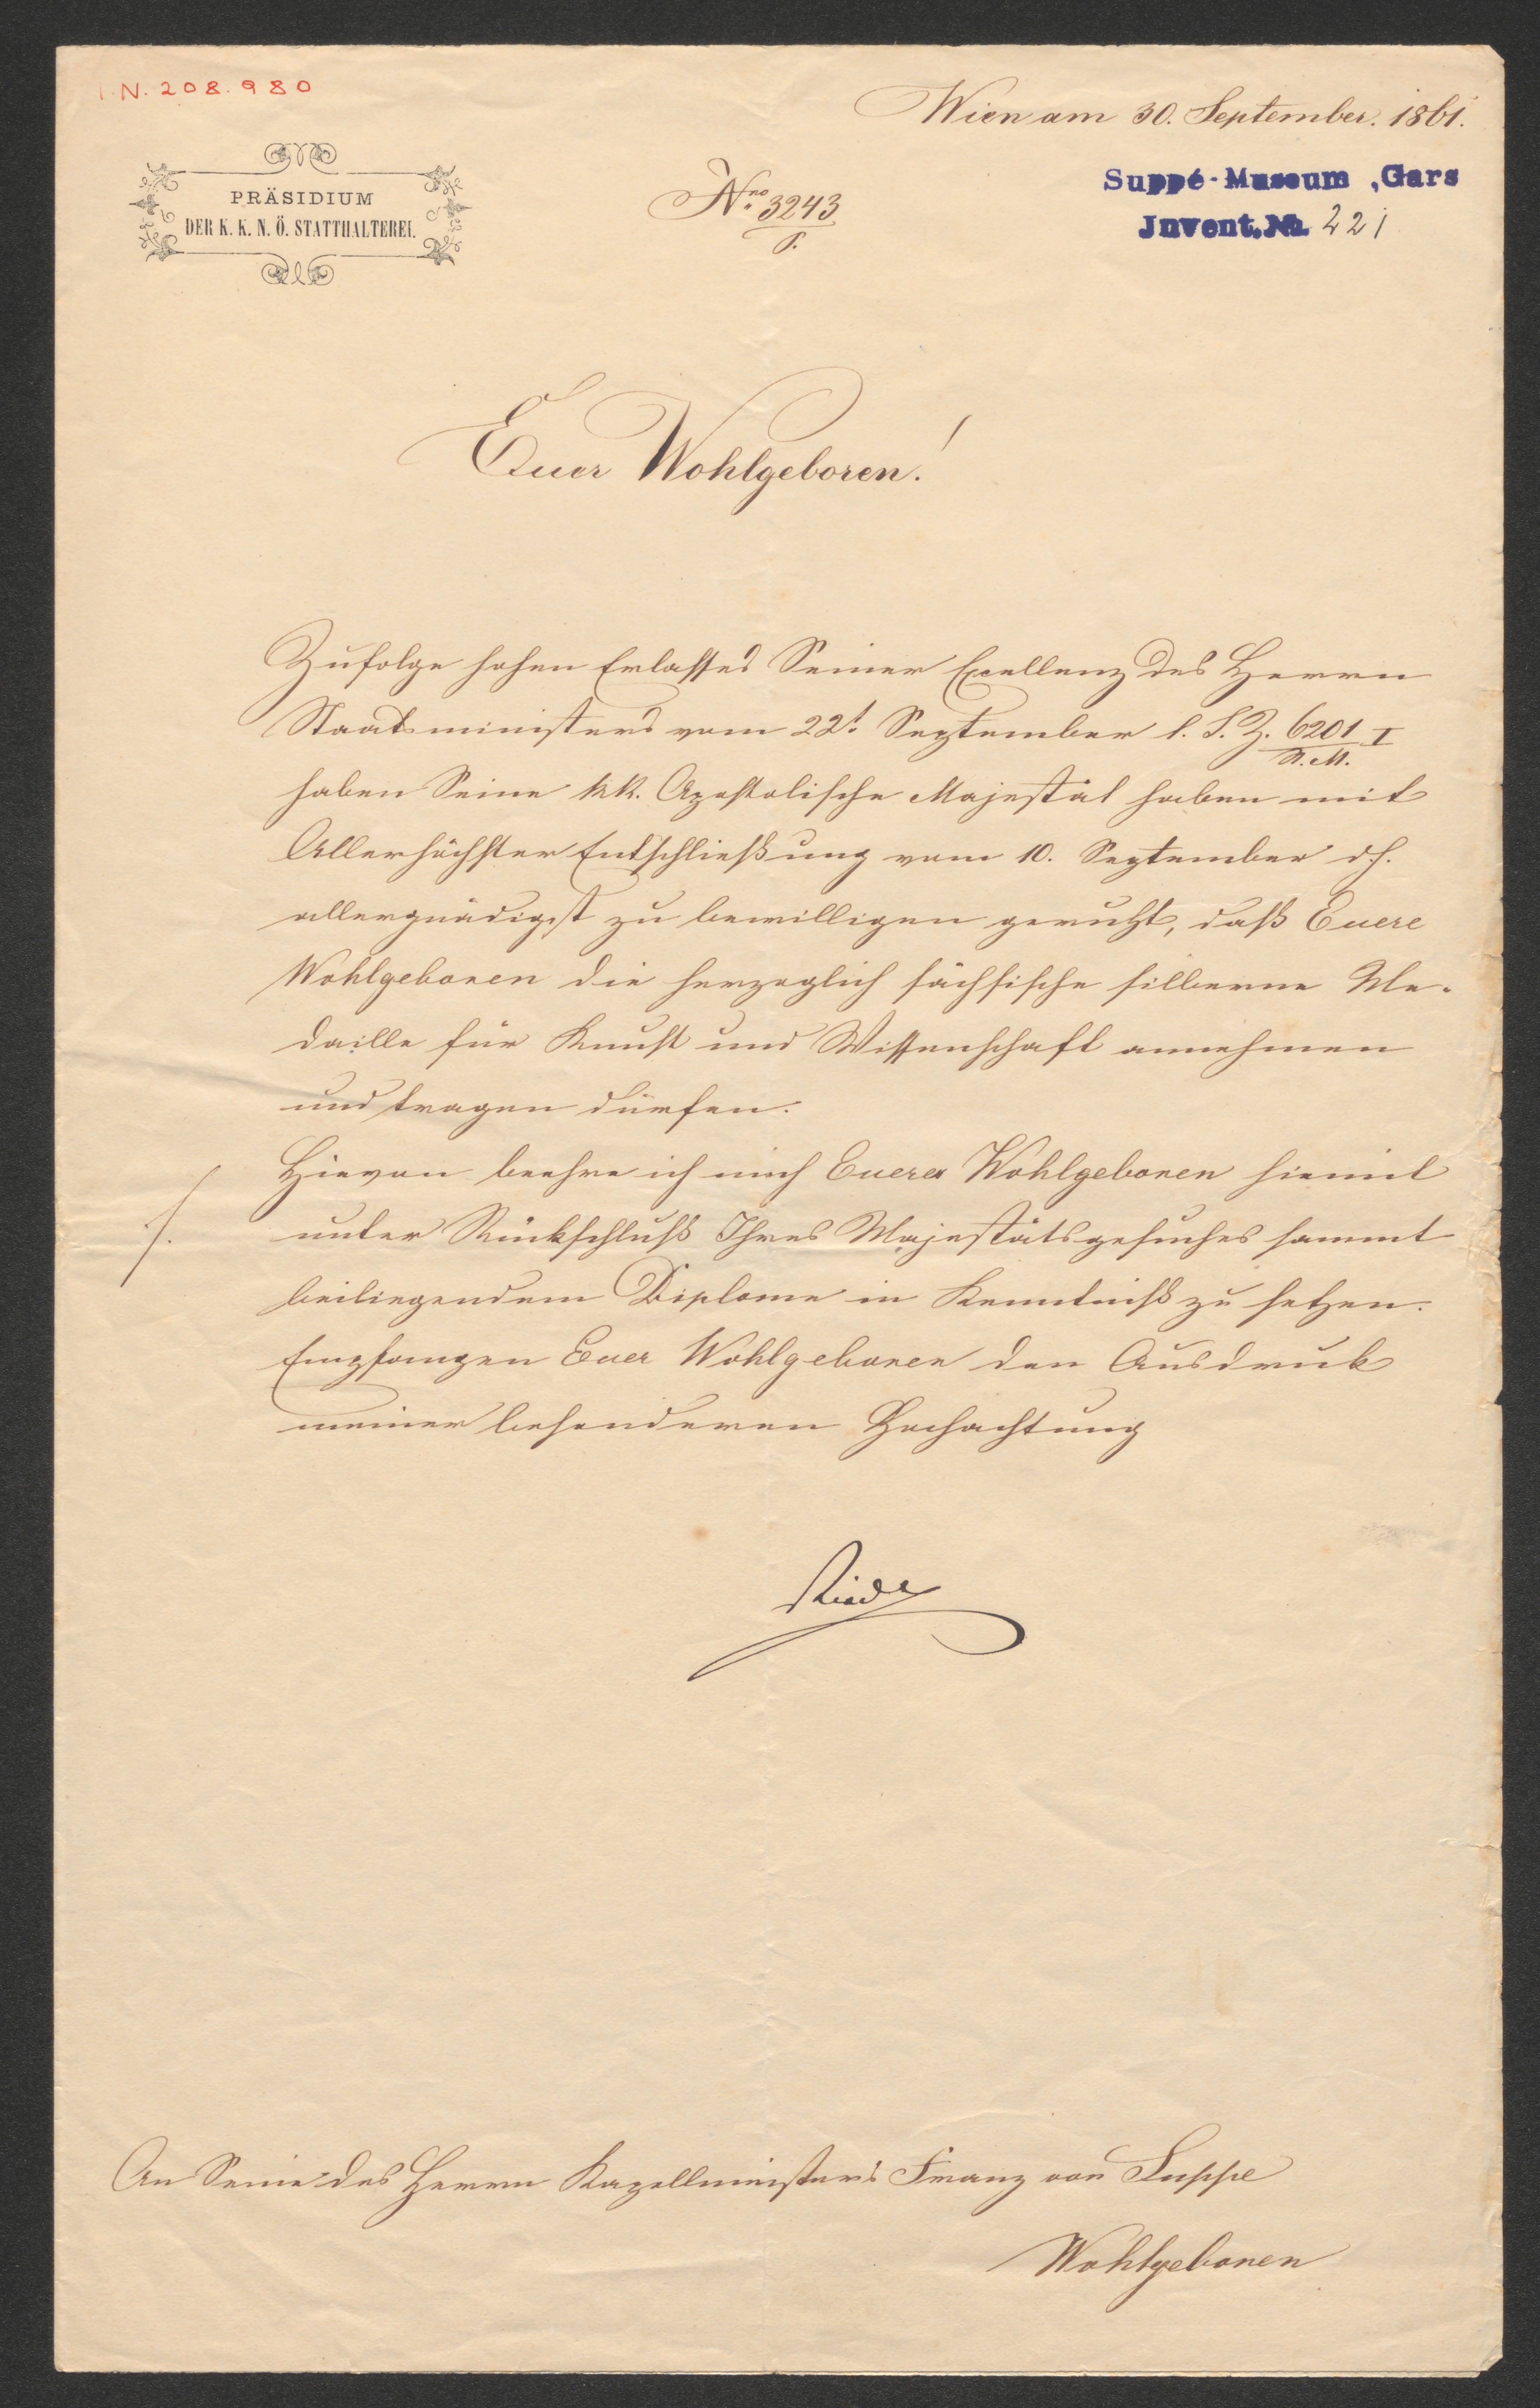 I.N. 208.980
Wien am 30. September. 1861.
PRÄSIDIUM
DER K. K. N. Ö. STATTHALTEREI.
Nro 3243
P.
Suppé-Museum, Gars
Invent. No 221
Euer Wohlgeboren!
Zufolge hohen Erlasses Seiner Excellenz des Herrn
Staatsministers vom 22t. September l. J. Z. 6201 I
St. M.
haben Seine kk. Apostolische Majestät haben mit
Allerhöchster Entschließung vom 10. September d. J.
allergnädigst zu bewilligen geruht, daß Euere
Wohlgeboren die herzoglich sächsische silberne Me-
daille für Kunst und Wissenschaft annehmen
und tragen dürfen.
Hievon beehre ich mich Euerer Wohlgeboren hiemit
./. unter Rückschluß Ihres Majestätsgesuches sammt
beiliegendem Diplome in Kenntniß zu setzen.
Empfangen Euer Wohlgeboren den Ausdruck
meiner besonderen Hochachtung
An Seine des Herrn Kapellmeisters Franz von Suppe
Wohlgeboren